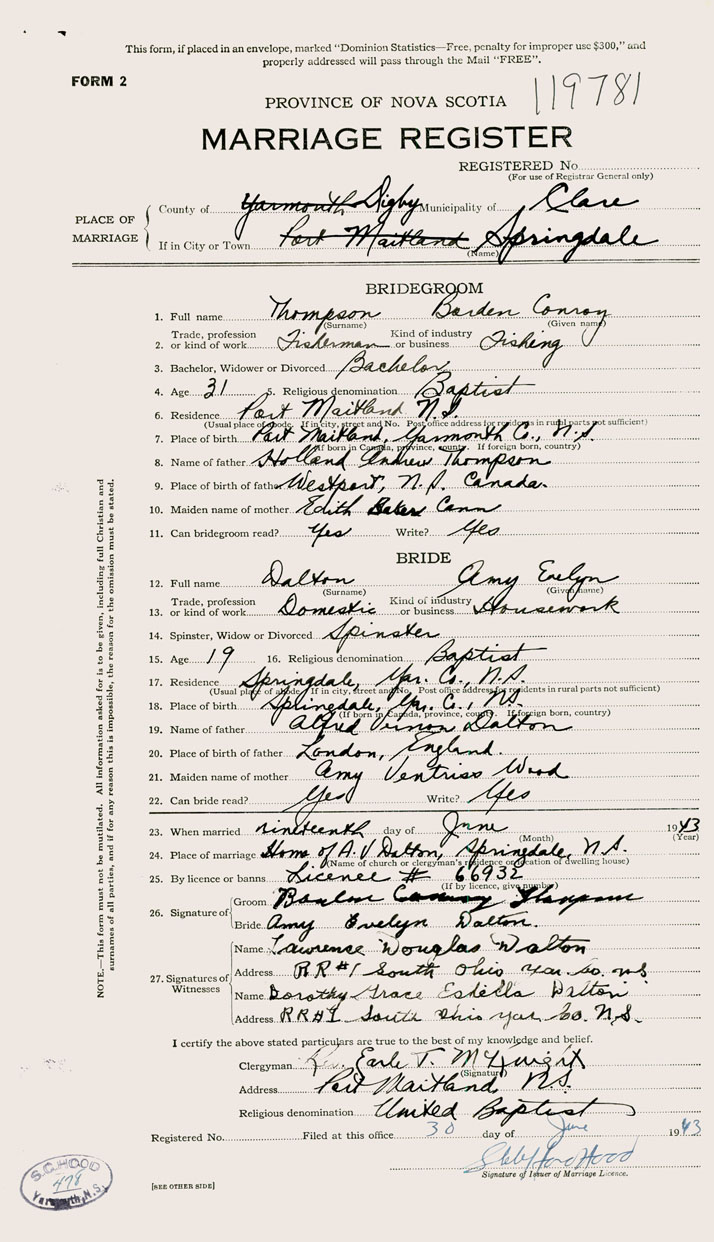 This form, if placed in an envelope, marked "Dominion Statistics—Free, penalty for improper use $300," and
properly addressed will pass through the Mail "FREE".
FORM 2
119781
PROVINCE OF NOVA SCOTIA
MARRIAGE REGISTER
REGISTERED No
(For use of Registrar General only)
PLACE OF MARRIAGE
County of Yarmouth Digby Municipality of Clare
If in City or Town Port Maitland Springdale
(Name)
BRIDEGROOM
1. Full name Thompson Borden Conroy
(Surname) (Given name)
2. Trade, profession or kind of work Fisherman Kind of industry or business Fishing
3. Bachelor, Widower or Divorced Bachelor
4. Age 31 5. Religious denomination Baptist
6. Residence Port Maitland N.S.
(Usual place of abode. If in city, street and No. Post office address for residents in rural parts not sufficient)
7. Place of birth Port Maitland, Yarmouth Co., N.S.
(If born in Canada, province, county. If foreign born, country)
8. Name of father Holland Andrew Thompson
9. Place of birth of father Westport, N.S. Canada.
10. Maiden name of mother Edith Cann
11. Can bridegroom read? Yes Write? Yes
BRIDE
12. Full name Dalton Amy Evelyn
(Surname) (Given name)
13. Trade, profession or kind of work Domestic Kind of industry or business Housework
14. Spinster, Widow or Divorced Spinster
15. Age 19 16. Religious denomination Baptist
17. Residence Springdale, Yar. Co., N.S.
(Usual place of abode. If in city, street and No. Post office address for residents in rural parts not sufficient)
18. Place of birth Springdale, Yar. Co., N.S.
(If born in Canada, province, county. If foreign born, country)
19. Name of father Alfred Vernon Dalton
20. Place of birth of father London, England.
21. Maiden name of mother Amy Ventriss Wood
22. Can bride read? Yes Write? Yes
23. When married nineteenth day of June 1943
(Month) (Year)
24. Place of marriage Home of A.V Dalton, Springdale, N.S.
(Name of church or clergyman's residence or location of dwelling house)
25. By licence or banns Licence # 66932
(If by licence, give number)
26. Signature of
Groom Conroy Thompson
Bride Amy Evelyn Dalton.
27. Signatures of Witnesses
Name Lawrence Douglas Dalton
Address RR#1 South Ohio Yar. Co. NS
Name Dorothy Grace Estella Dalton
Address RR#1 South Ohio Yar Co. N.S.
I certify the above stated particulars are true to the best of my knowledge and belief.
Clergyman Rev. Earle T.
(Signature)
Address Port Maitland, N.S.
Religious denomination United Baptist
Registered No. Filed at this office 30 day of June 1943
Hood
Signature of Issuer of Marriage Licence.
[SEE OTHER SIDE]
S.C. HOOD
478
Yarmouth, N.S.
NOTE.—This form must not be mutilated. All information asked for is to be given, including full Christian and
surnames of all parties, and if for any reason this is impossible, the reason for the omission must be stated.